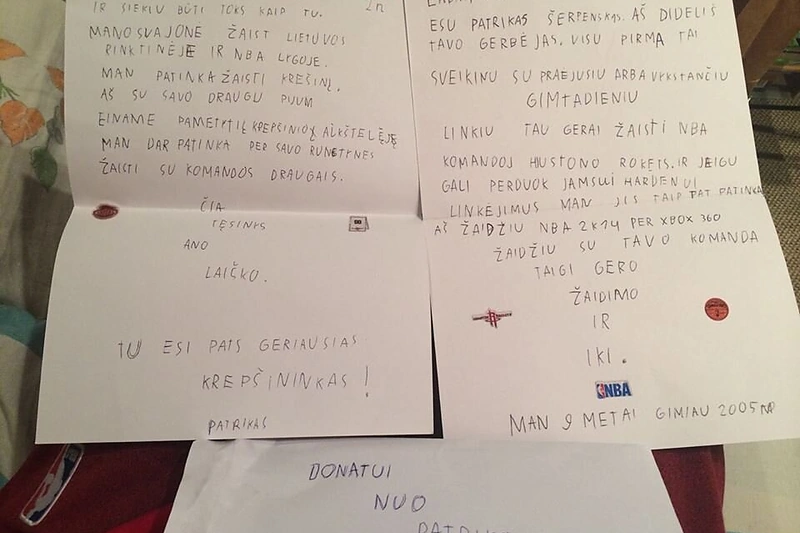 IR SIEKIU BŪTI TOKS KAIP TU.
MANO SVAJONĖ ŽAIST LIETUVOS
RINKTINĖJE IR NBA LYGOJE.
MAN PATINKA ŽAISTI KREŠINĮ.
AŠ SU SAVO DRAUGU
EINAME KREPŠINIO
MAN DAR PATINKA PER SAVO
ŽAISTI SU KOMANDOS DRAUGAIS.
ČIA
TĘSINYS
ANO
LAIČKO.
TU ESI PATS GERIAUSIAS
KREPŠININKAS!
PATRIKAS
ESU PATRIKAS AŠ DIDELIS
TAVO GERBĖJAS. VISU PIRMA TAI
SVEIKINU SU PRAEJUSIU ARBA VYKSTANČIU
GIMTADIENIU
LINKIU TAU GERAI ŽAISTI NBA
KOMANDOJ HIUSTONO ROKETS. IR JEIGU
GALI PERDUOK JAMSUI HARDENUI
LINKĖJIMUS MAN JIS TAIP PAT PATINKA
AŠ ŽAIDŽIU NBA 2K14 PER XBOX 360
ŽAIDŽIU SU TAVO KOMANDA
TAIGI GERO
ŽAIDIMO
IR
IKI.
NBA
MAN 9 METAI GIMIAU 2005
DONATUI
NUO